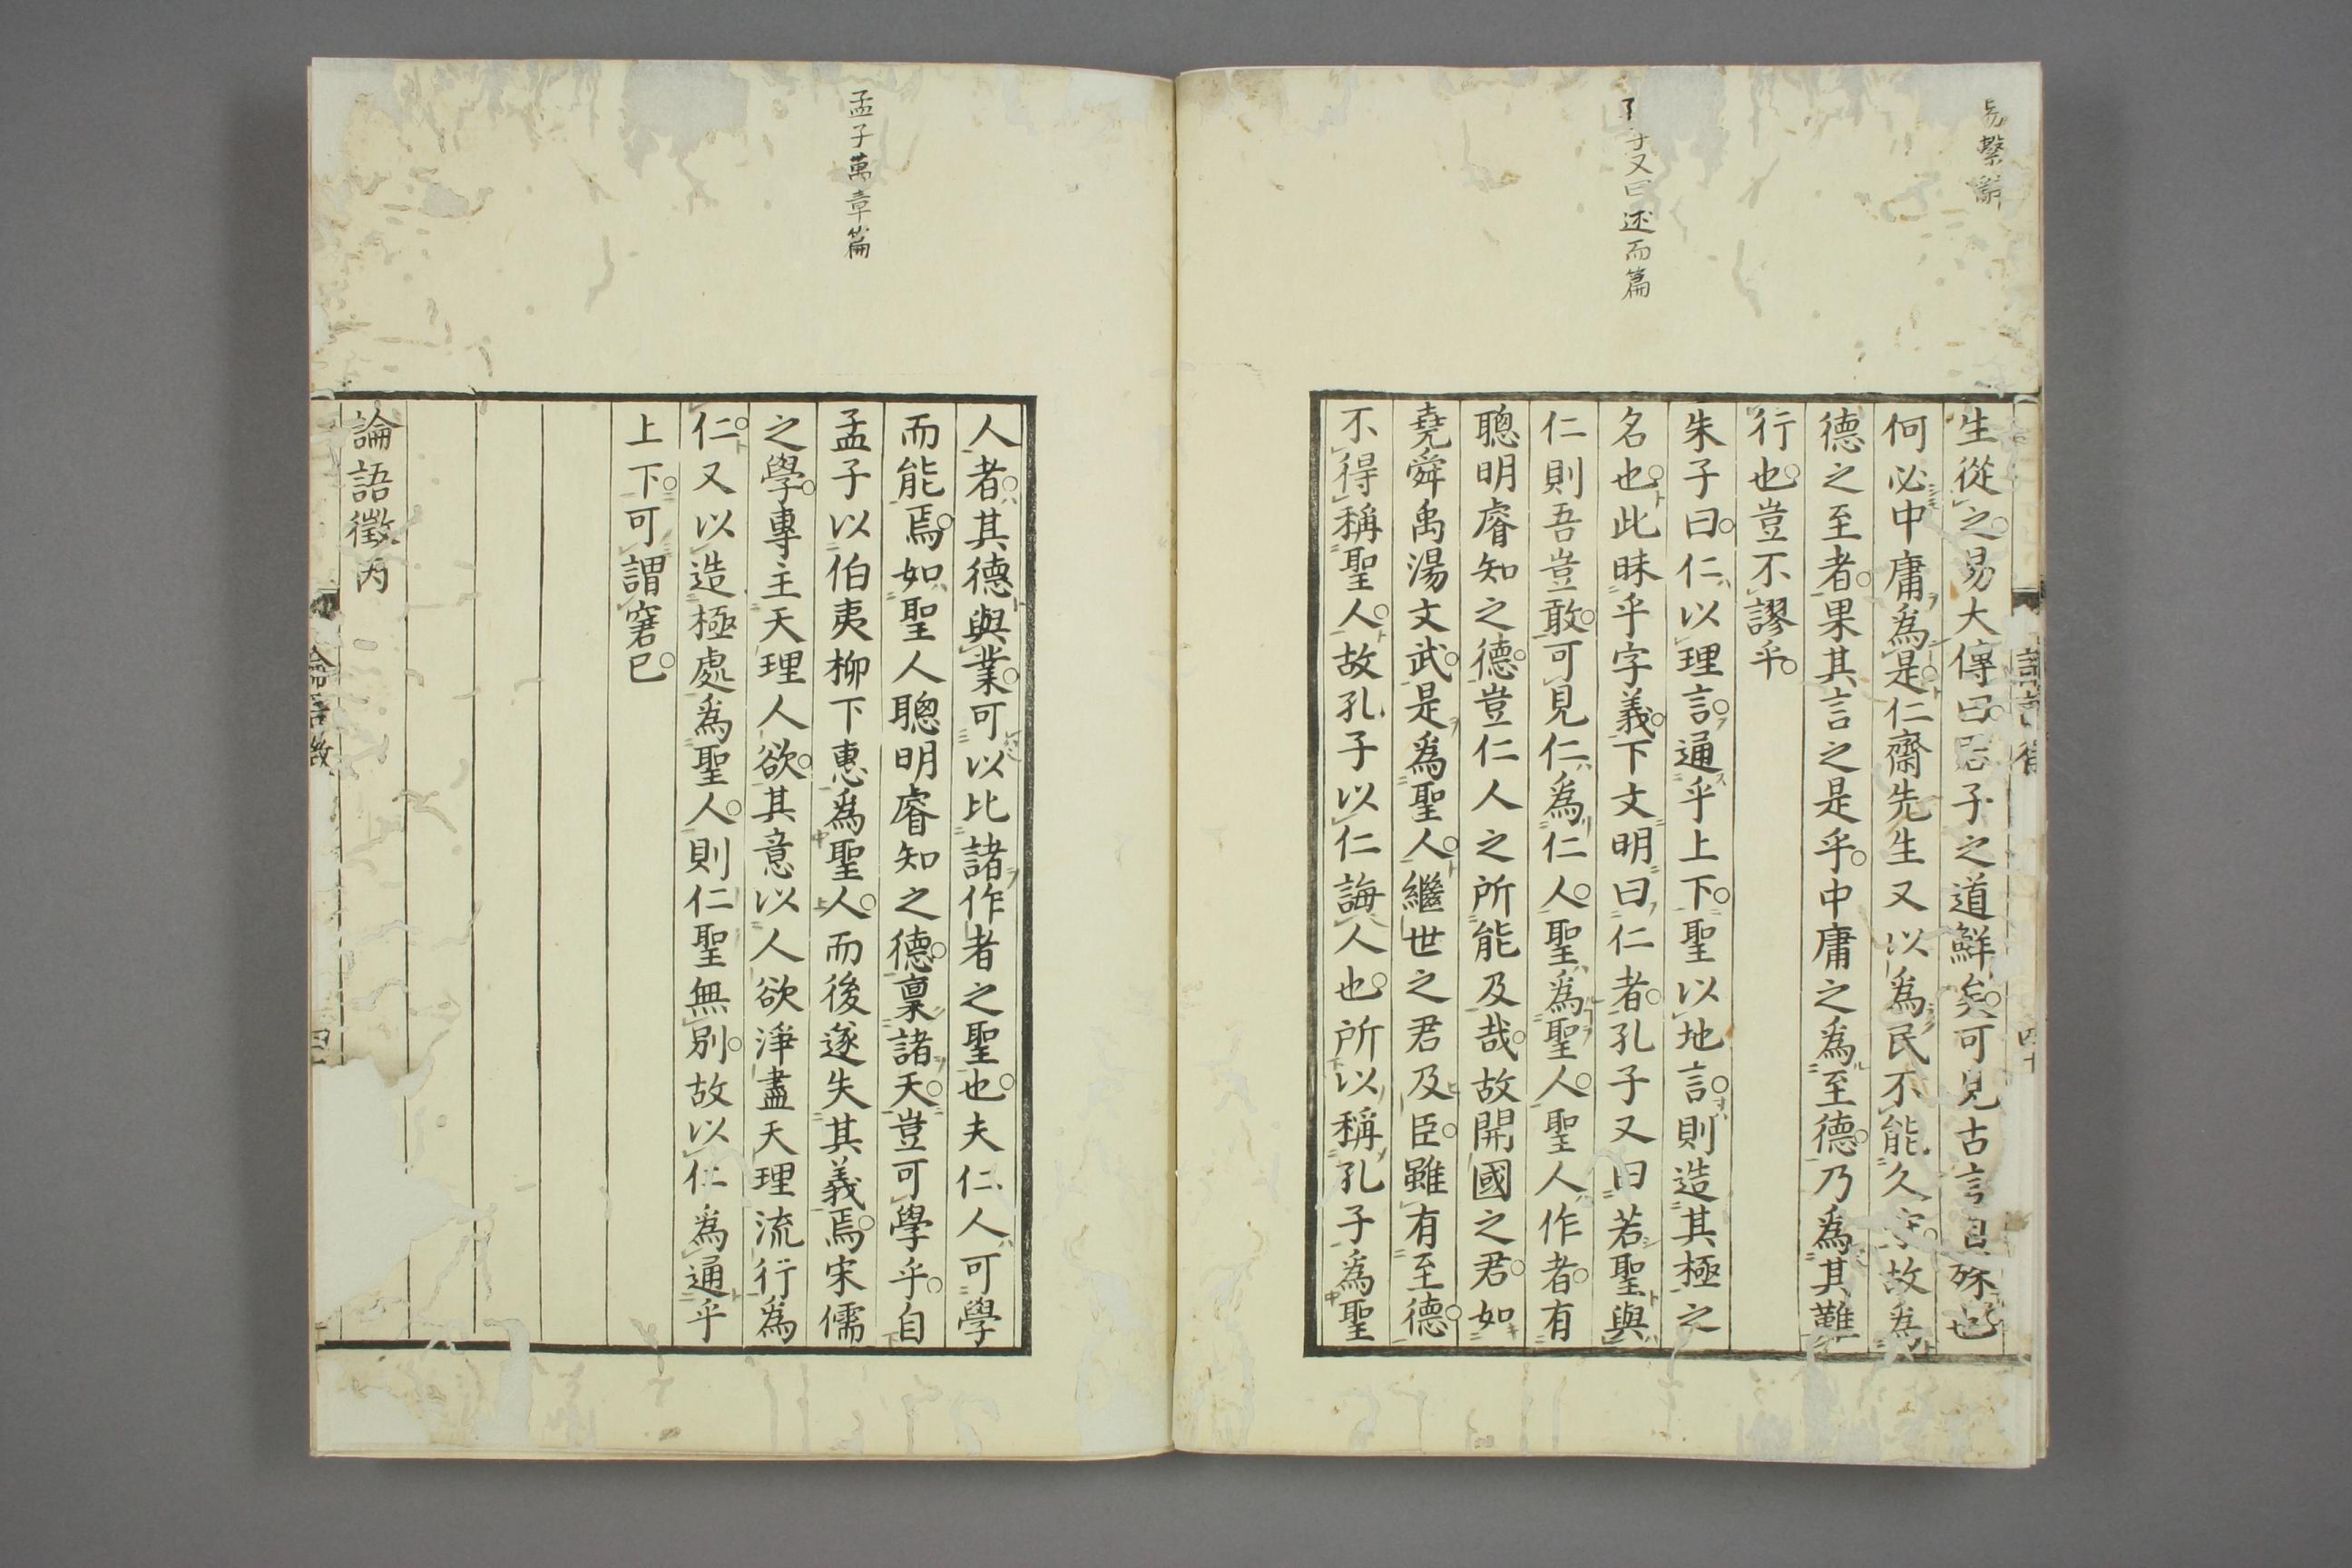 易繫辭
子又曰述而篇
生從之易大傳曰君子之道鮮矣可見古言自殊也
何必中庸爲是仁齋先生又以爲民不能久守故爲
德之至者果其言之是乎中庸之爲至德乃爲其難
行也豈不謬乎
朱子曰仁以理言通乎上下聖以地言則造其極之
名也此昧乎字義下文明曰仁者孔子又曰若聖與
仁則吾豈敢可見仁爲仁人聖爲聖人聖人作者有
聰明睿知之德豈仁人之所能及哉故開國之君如
堯舜禹湯文武是爲聖人繼世之君及臣雖有至德
不得稱聖人故孔子以仁誨人也所以稱孔子爲聖
孟子萬章篇
人者其德與業可以比諸作者之聖也夫仁人可學
而能焉如聖人聰明睿知之德稟諸天豈可學乎自
孟子以伯夷柳下惠爲聖人而後遂失其義焉宋儒
之學專主天理人欲其意以人欲淨盡天理流行爲
仁又以造極處爲聖人則仁聖無別故以仁爲通乎
上下可謂窘已
論語徵丙
論語徵